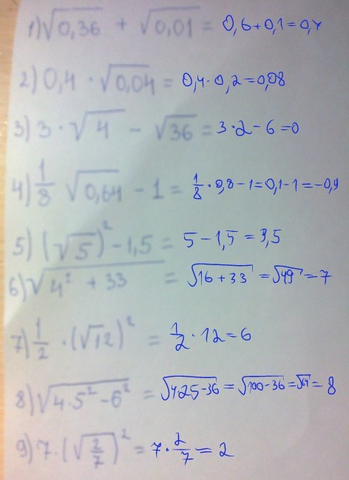 1) √0,36 + √0,01 = 0,6+0,1=0,7
2) 0,4 · √0,04 = 0,4·0,2=0,08
3) 3 · √4 - √36 = 3·2-6=0
4) 1/8 √0,64 - 1 = 1/8·0,8-1=0,1-1=-0,9
5) (√5)² - 1,5 = 5-1,5=3,5
6) √4² + 33 = √16+33 = √49 = 7
7) 1/2 · (√12)² = 1/2 · 12 = 6
8) √4·5² - 6² = √4·25-36 = √100-36 = √64 = 8
9) 7 · (√2/7)² = 7·2/7 = 2